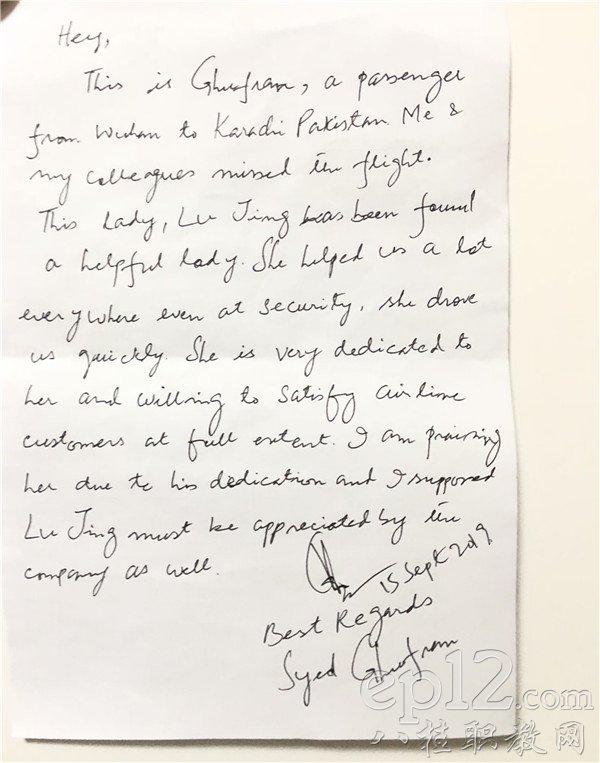 Hey,
This is Ghufran, a passenger
from Wuhan to Karachi Pakistan. Me &
my colleagues missed the flight.
This lady, Lu Jing has been found
a helpful lady. She helped us a lot
everywhere even at security, she drove
us quickly. She is very dedicated to
her and willing to satisfy airline
customers at full extent. I am praising
her due to his dedication and I supposed
Lu Jing must be appreciated by the
company as well.
15 Sept 2019
Best Regards
Syed Ghufran
ep12.com
八桂职教网